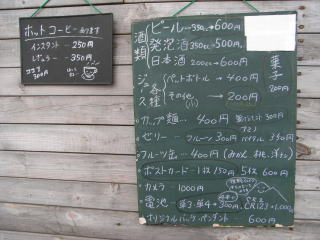 ホットコーヒーあります
インスタント — 250円
レギュラー — 350円
ココア 300円
酒類
ビール 350cc→600円
発泡酒 350cc 500円
日本酒 200cc→600円
ジュース各種
ペットボトル → 400円
その他(小) → 200円
菓子 200円
カップ麺… 400円
ゼリー フルーツ 300円
フルーツ缶 — 400円(みかん 桃
ポストカード — 1枚150円 5枚600円
カメラ — 1000円
電池 — 単3・単4→300円
CR123→1,000
オリジナル
ペンダント 600円